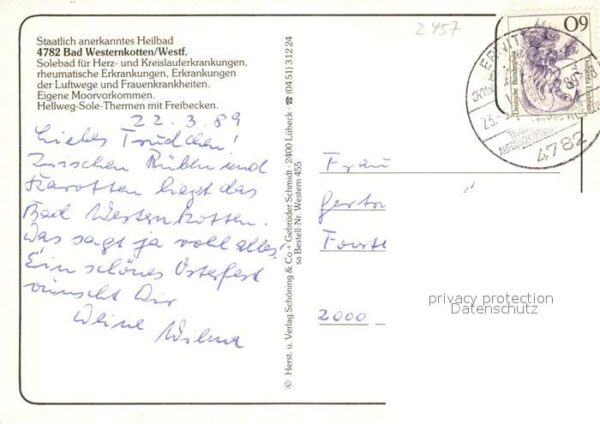 Z 457
Staatlich anerkanntes Heilbad
4782 Bad Westernkotten/Westf.
Solebad für Herz- und Kreislauferkrankungen,
rheumatische Erkrankungen, Erkrankungen
der Luftwege und Frauenkrankheiten.
Eigene Moorvorkommen.
Hellweg-Sole-Thermen mit Freibecken.
22.3.89
Liebes Trudchen!
Zwischen Rüben und
Karotten liegt das
Bad Westernkotten.
Das sagt ja wohl alles!
Ein schönes Osterfest
wünscht Dir
Deine Wilma
© Herst. u. Verlag Schöning & Co + Gebrüder Schmidt · 2400 Lübeck · ☎ (04 51) 3 12 24
sa Bestell-Nr. Western 455
60
Deutsche Bundespost
ERWITTE
4782
Frau
Gertr
2000
privacy protection
Datenschutz